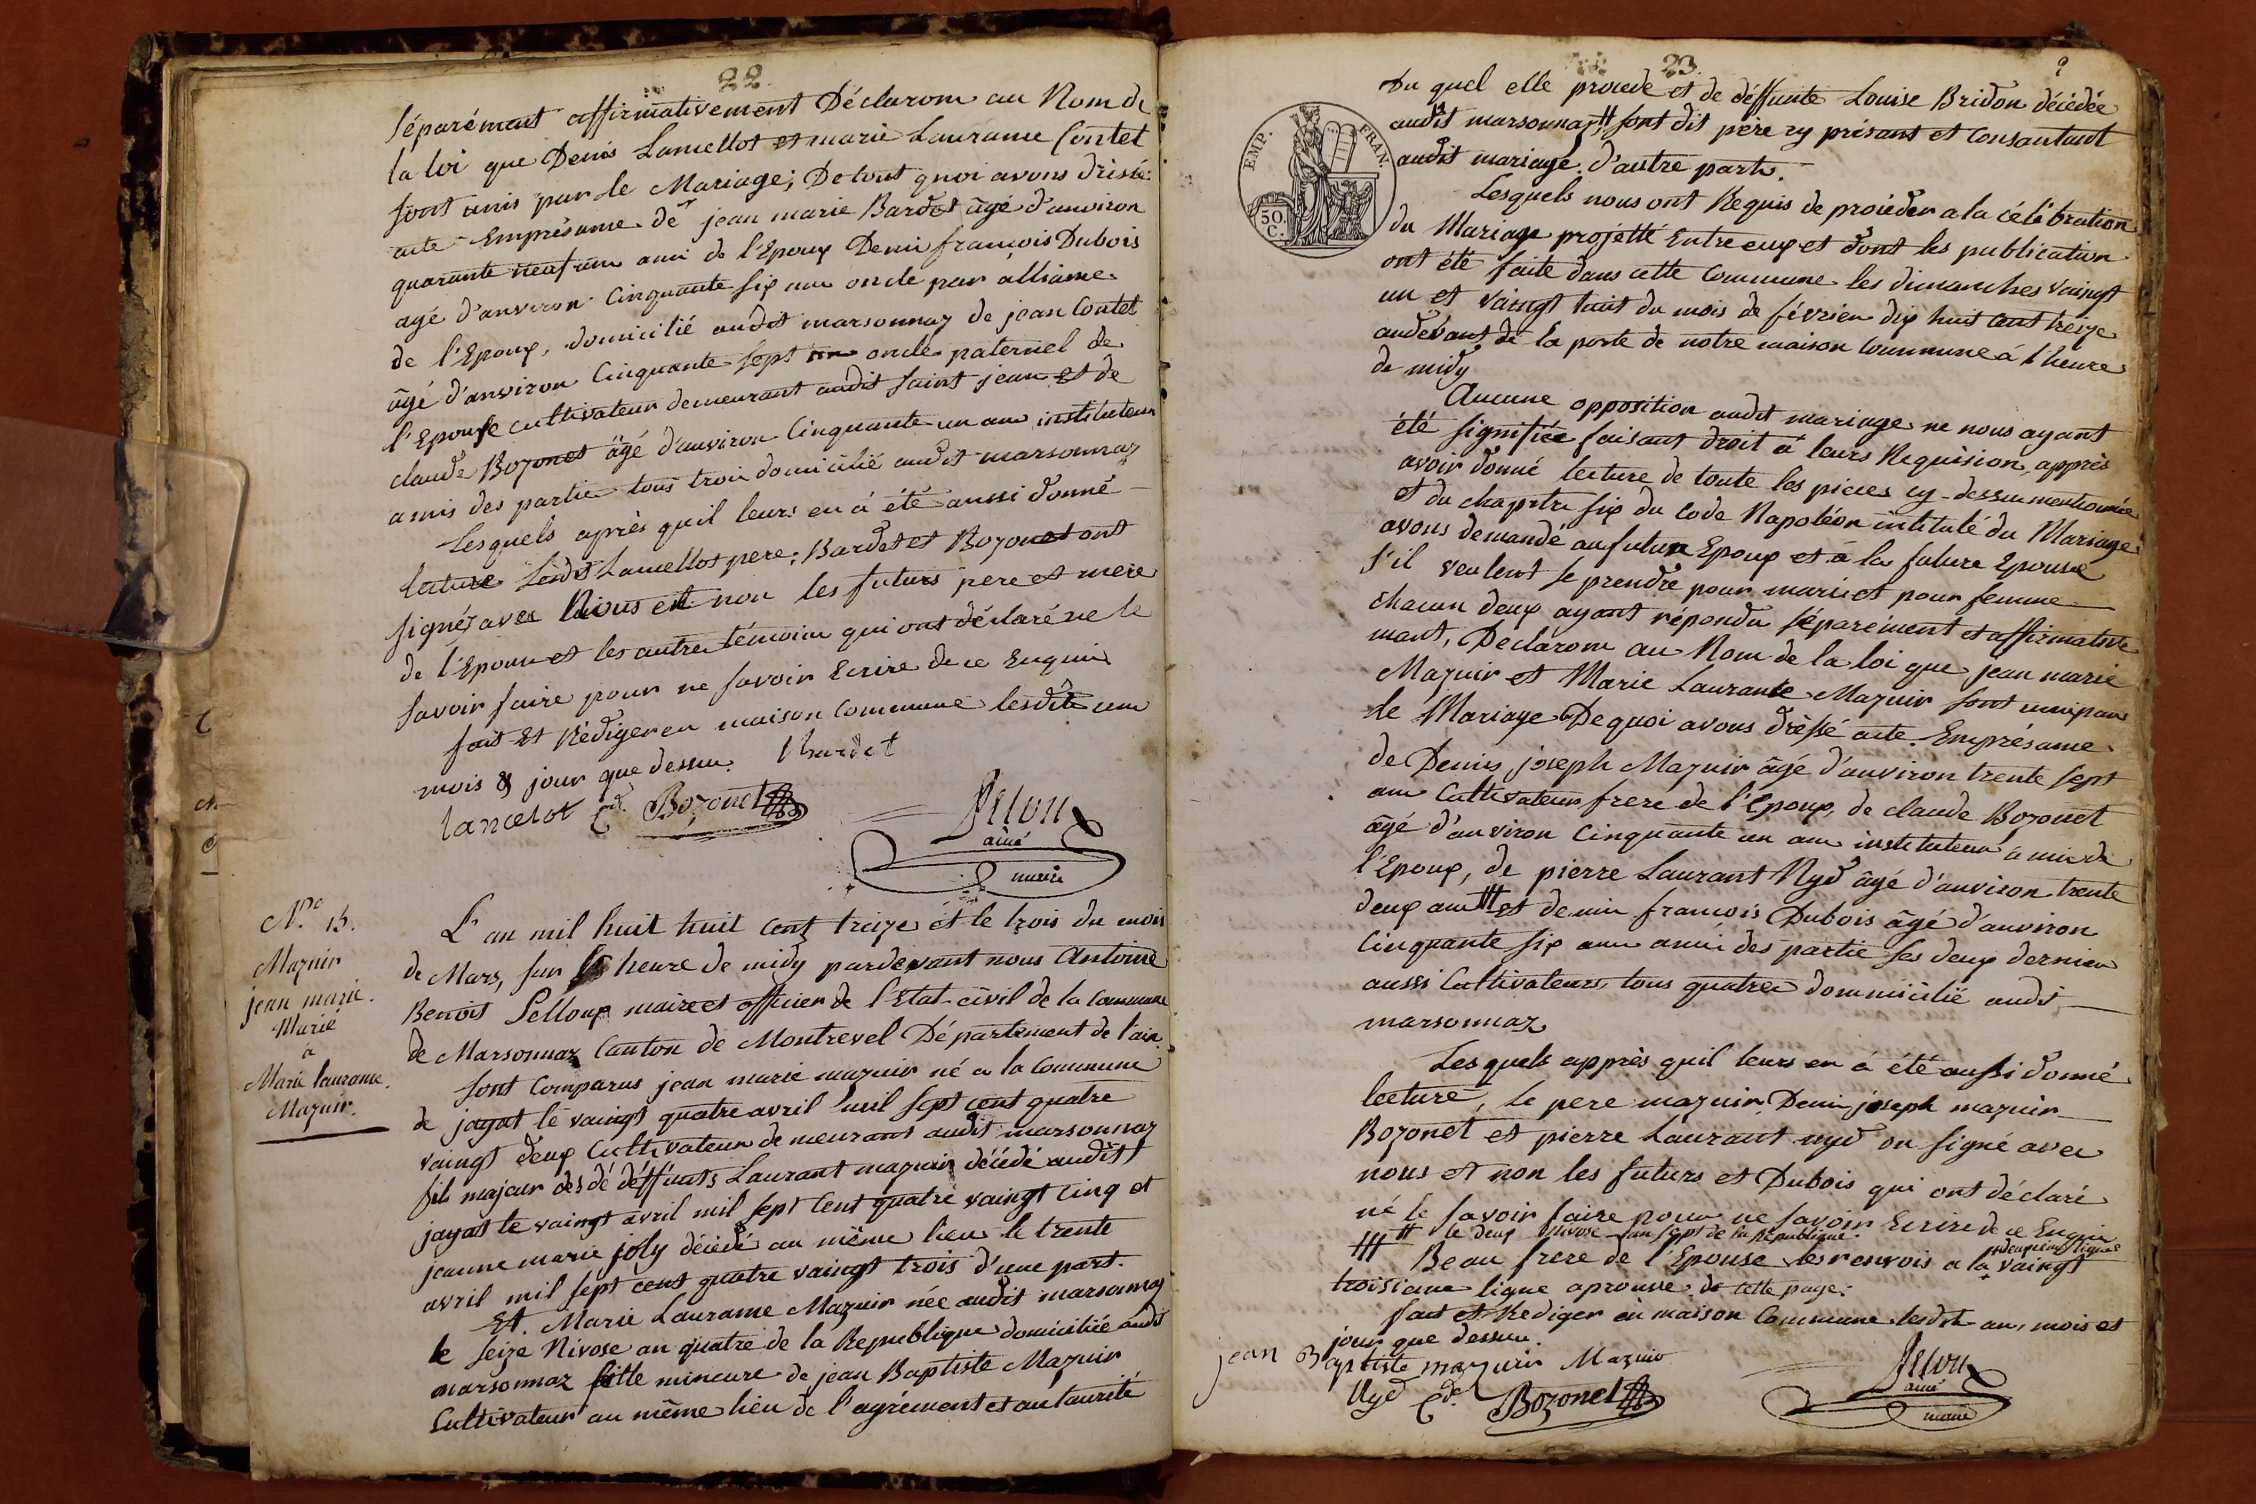 22
séparémant affirmativement Déclarom au Nom de
la loi que Denis Lamellot et marie Laurame Contet
sont unis par le Mariage; De tout quoi avons drissé
acte Emprésame de jean marie Bardet âgé d'anviron
quarante neuf am ami de l'Epoux Denin françois Dubois
agé d'anviron Cinquante six am oncle par alliame
de l'Epoux, domicilié audit marsonnaz de jean Contet
âgé d'anviron Cinquante sept am oncle paternel de
l'Epouse cultivateur demeurant audit saint jean et de
claude Bozonet âgé d'anviron Cinquante un am instituteur
amis des partie tous troin domicilié audit marsonnaz
Lesquels après quil leurs en à été aussi donné
lature Lesdit Lamellot pere; Bardet et Bozonet ont
signéz avec Nous et non les futurs pere et mere
de l'Epoux et les autre témoim qui ont déclaré ne le
savoir faire pour ne savoir Ecrire de ce Enquir
fait Et Rédiger en maison Commune lesdite am
mois & jour que dessu. Bardet
lancelot Cde. Bozonet
Pelloux
ainé
maire
N.o 13.
Mazuir
jean marie.
Marié
à
Marie laurame.
Mazuir.
L'an mil huit huit cent treize et le trois du mois
de Mars, sur l'heure de midy pardevant nous Antoine
Benoit Pelloux maire et officier de l'Etat civil de la Commune
de Marsonnaz Canton de Montrevel Département de l'ain
sont Comparus jean marie mazuir né a la Commune
de jayat le vaingt quatre avril mil sept cent quatre
vaingt deux Cultivateur demeurant audit marsonnaz
fils majeur des dé déffunts Laurant mazuir décédé audit
jayat le vaingt avril mil sept Cent quatre vaingt cinq et
jeanne marie joly décédé au même lieu le trente
avril mil sept cent quatre vaingt trois d'une part.
Et. Marie Laurame Mazuir née audit marsonnaz
le seize Nivose an quatre de la Republique domiciliée audit
marsonnaz fille mineure de jean Baptiste Mazuir
Cultivateur au même lieu de l'agrément et autaurité
23.
9
EMP. FRAN.
50.
C.
Du quel elle procede et de déffunte Louise Bridon décédée
audit marsonnaz sont dit père cy présant et Consantant
audit mariage. d'autre part.
Lesquels nous ont Requis de procéder a la célébration
du Mariage projetté Entre eux et dont les publication
ont été faite dans cette Commune les dimanches vaingt
un et vaingt huit du mois de février dix huit cent treize
audevant de la porte de notre maison Commune à l'heure
de midy
Aucune opposition audit mariage ne nous ayant
été signifiée faisant droit à leurs Requision, apprès
avoir donné lecture de toute les pieces cy-dessu mentionnée
et du chapitre six du Code Napoléon intitulé du Mariage
avons demandé au future Epoux et à la future Epouse
s'il veulent se prendre pour mari et pour femme
chacun deux ayant répondu séparément et affirmative
mant, Déclarom au Nom de la loi que jean marie
Mazuir et Marie Laurante Mazuir sont uni par
le Mariage De quoi avons dréssé acte. Emprésame
de Denis joseph Mazuir âgé d'anviron trente sept
am Cultivateur frere de l'Epoux, de claude Bozonet
âgé d'anviron Cinquante un am instituteur amis de
l'Epoux, de pierre Laurant Nyd âgé d'anviron trente
deux am et denin francois Dubois âgé d'anviron
Cinquante six am amis des partie ses deux dernier
aussi Cultivateurs tous quatre domicilié audit
marsonnaz
Lesquels apprès quil leurs en à été aussi donné
lecture, le pere mazuir Denin joseph mazuir
Bozonet et pierre Laurant nyd on signé avec
nous et non les futurs et Dubois qui ont déclaré
né le savoir faire pour ne savoir Ecrire de ce Enquir
le deux Nivose an sept de la République.
Beau frere de l'Epouse les renvois a la deuxieme ligne vaingt
troisieme ligne aprouvé de cette page.
fait et Rediger en maison Commune lesdit an, mois et
jour que dessu.
jean Baptiste mazuir Mazuir
Nyd Cde. Bozonet
Pelloux
ainé
maire